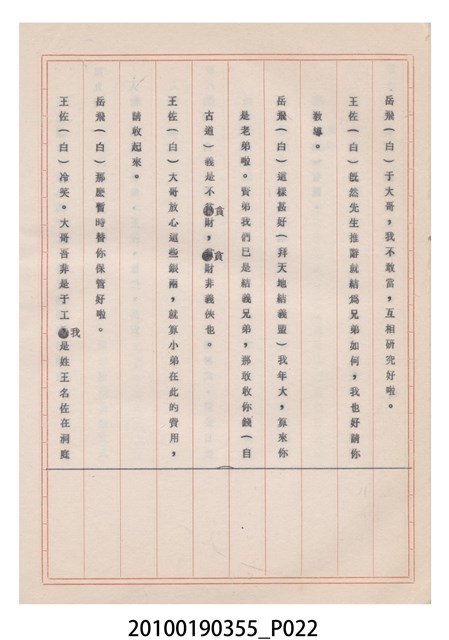 岳飛（白）于大哥，我不敢當，互相研究好啦。
王佐（白）旣然先生推辭就結爲兄弟如何，我也好請你
敎導。
岳飛（白）這樣甚好（拜天地結義盟）我年大，算來你
是老弟啦。賣弟我們已是結義兄弟，那敢收你錢（自
古道）義是不貪財，貪財非義俠也。
王佐（白）大哥放心這些銀兩，就算小弟在此的費用，
請收起來。
岳飛（白）那麽暫時替你保管好啦。
王佐（白）冷笑。大哥吾非是于工，我是姓王名佐在洞庭
20100190355_P022